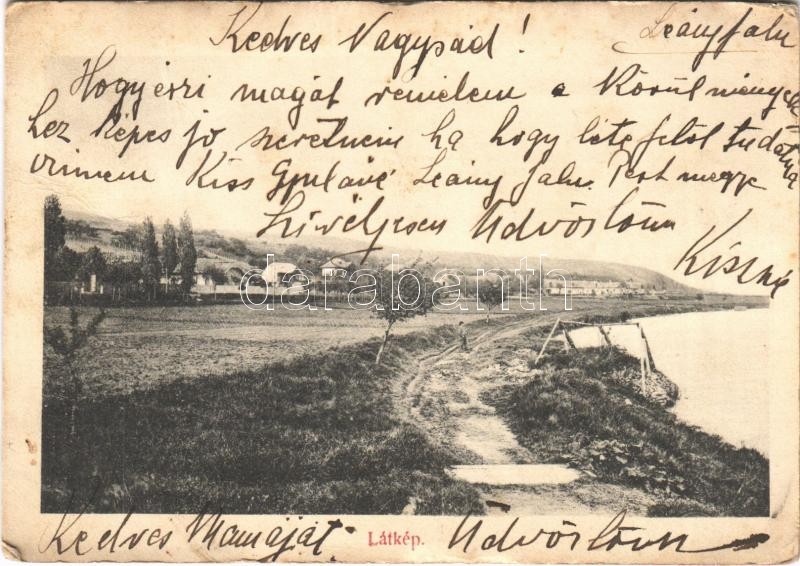 Leányfalu
Kedves Nagypád!
Hogy érzi magát remélem a Körülmények
hez képes jó szeretném ha hogy léte felöl tudatna
címem Kiss Gyuláné Leány falu. Pest megye
Szivélyesen Üdvözlöm
Kissné
darabanth.com
Kedves Mamáját Látkép. Üdvözlöm